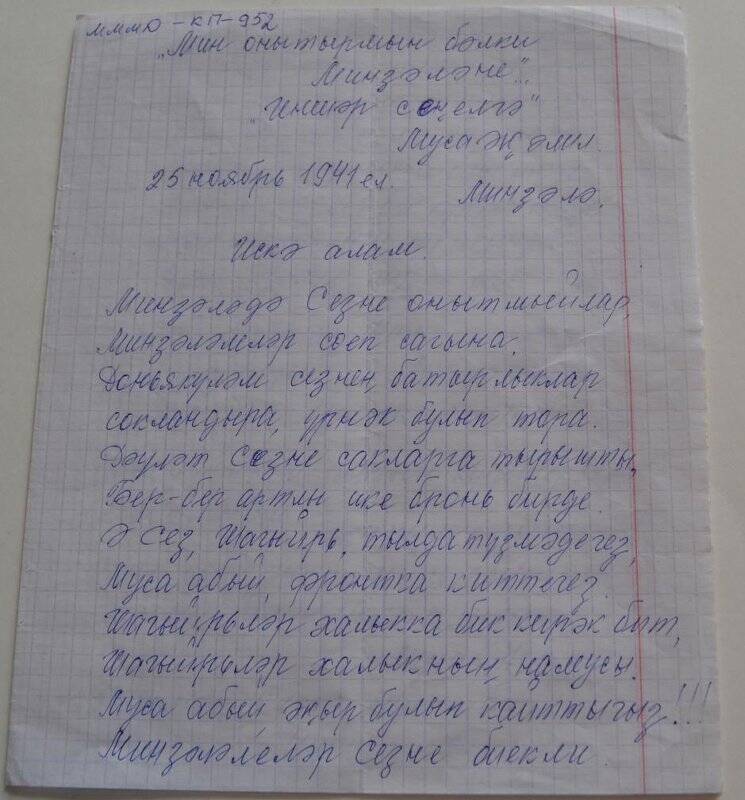 МММЮ - КП-952
„Мин онытырмын бәлки
Минзәләне"...
„Ишкәр сеңелгә"
Муса Җәлил.
25 ноябрь 1941 ел.
Минзәлә.
Искә алам.
Минзәләдә Сезне онытмыйлар,
Минзәләлеләр сөеп сагына.
Дөньякүләм сезнең батырлыклар
сокландыра, үрнәк булып тора.
Дәүләт Сезне сакларга тырышты,
Бер-бер артлы ике бронь бирде.
Ә Сез, Шагыйрь, тылда түзмәдегез,
Муса абый, фронтка киттегез.
Шагыйрьләр халыкка бик кирәк бит,
Шагыйрьләр халыкның намусы.
Муса абый әҗер булып кайттыгыз!!!
Минзәләлеләр сезне биекли